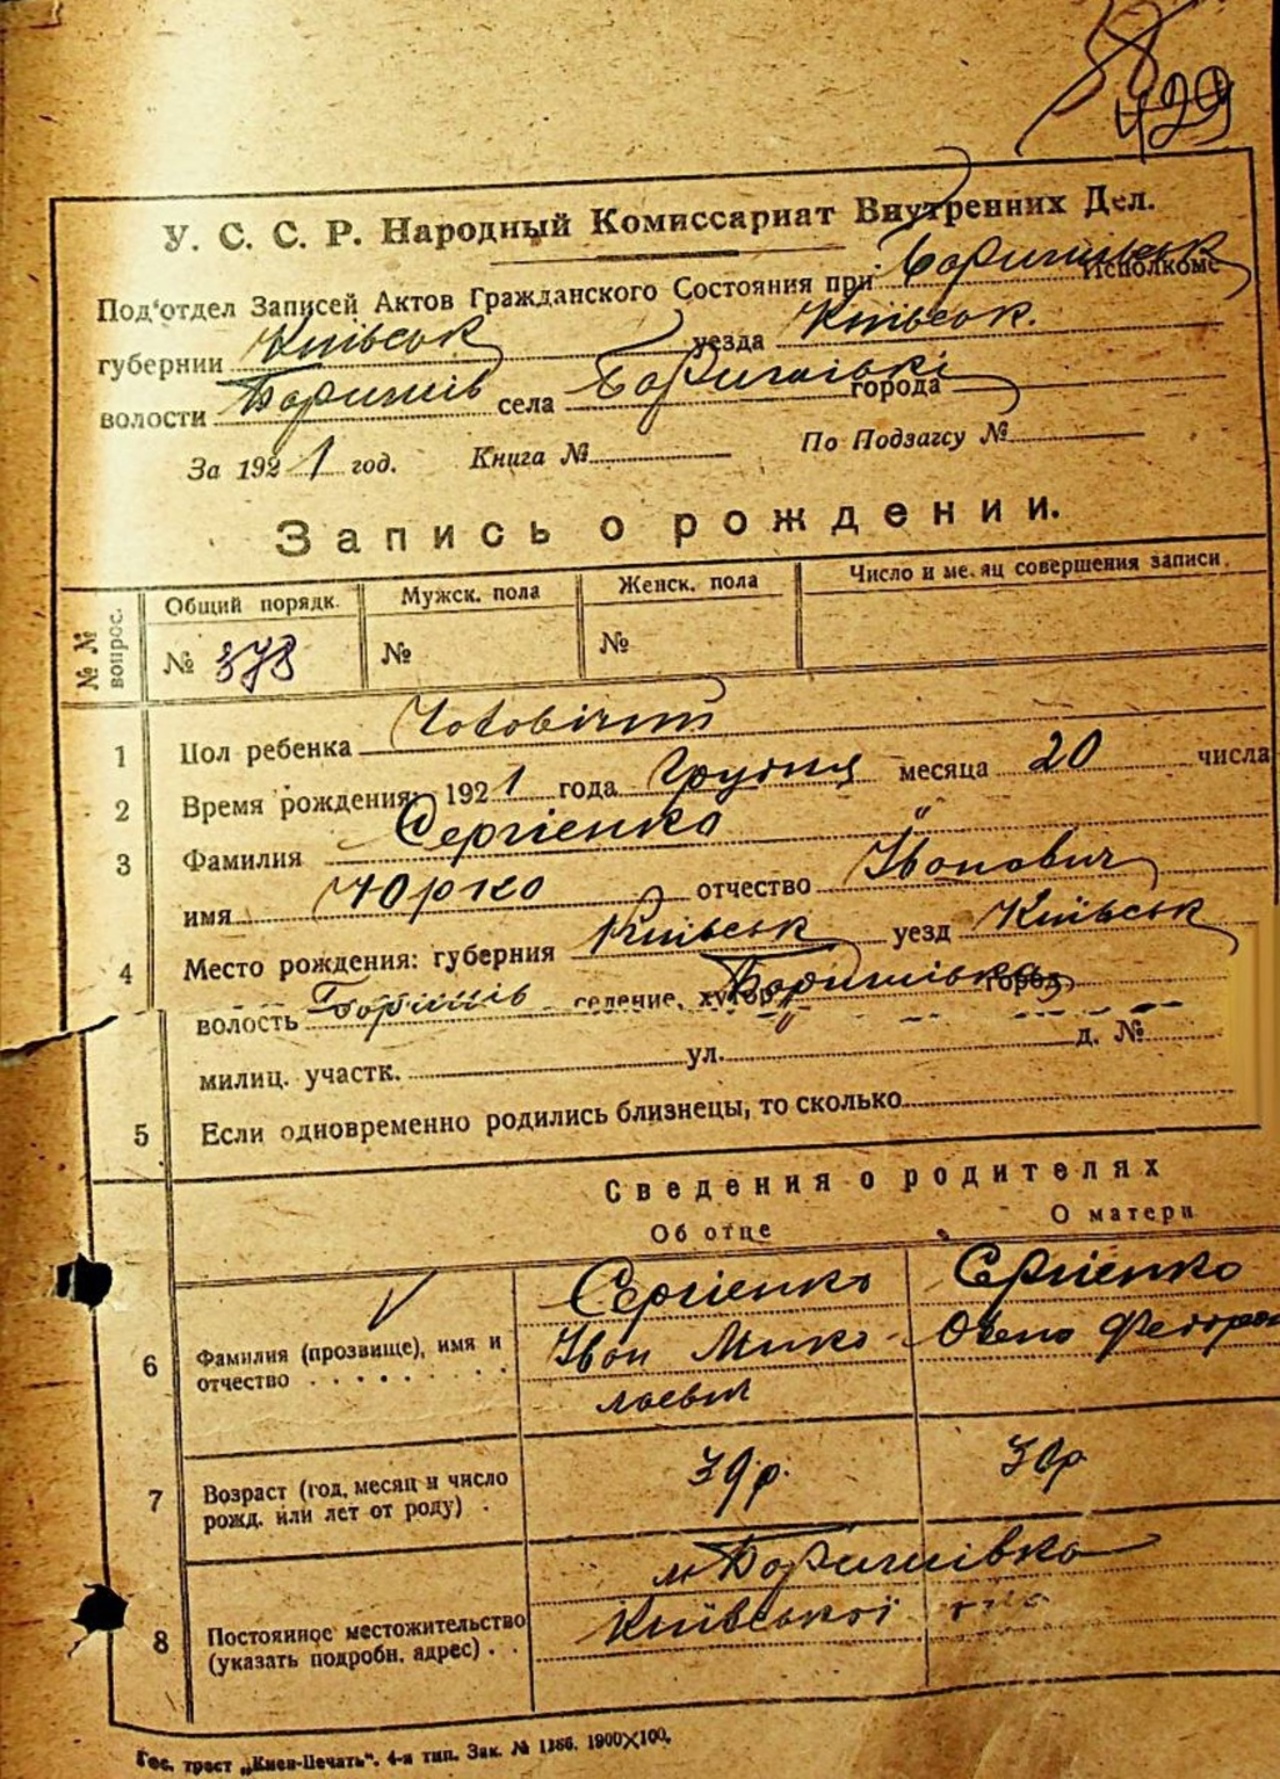 429
У. С. С. Р. Народный Комиссариат Внутренних Дел.
Под'отдел Записей Актов Гражданского Состояния при Исполкоме
губернии Київськ уезда Київськ.
волости села города
За 1921 год. Книга № По Подзагсу №
Запись о рождении.
№№ вопрос. Общий порядк. Мужск. пола Женск. пола Число и месяц совершения записи.
№ 378 № №
1 Пол ребенка Чоловічий
2 Время рождения: 1921 года Грудня месяца 20 числа
3 Фамилия Сергіенко "
имя Юрко отчество Іванович
4 Место рождения: губерния Київськ уезд Київськ
волость селение, хутор город
милиц. участк. ул. д. №
5 Если одновременно родились близнецы, то сколько
Сведения о родителях
Об отце О матери
6 Фамилия (прозвище), имя и отчество Сергіенко Сергіенко
Іван Мико-
лаевич
7 Возраст (год, месяц и число рожд. или лет от роду) 39 р. 30 р
8 Постоянное местожительство (указать подробн. адрес) м Баришівка
Київської
Гос. трест „Киев-Печать". 4-я тип. Зак. № 1186. 1900×100.